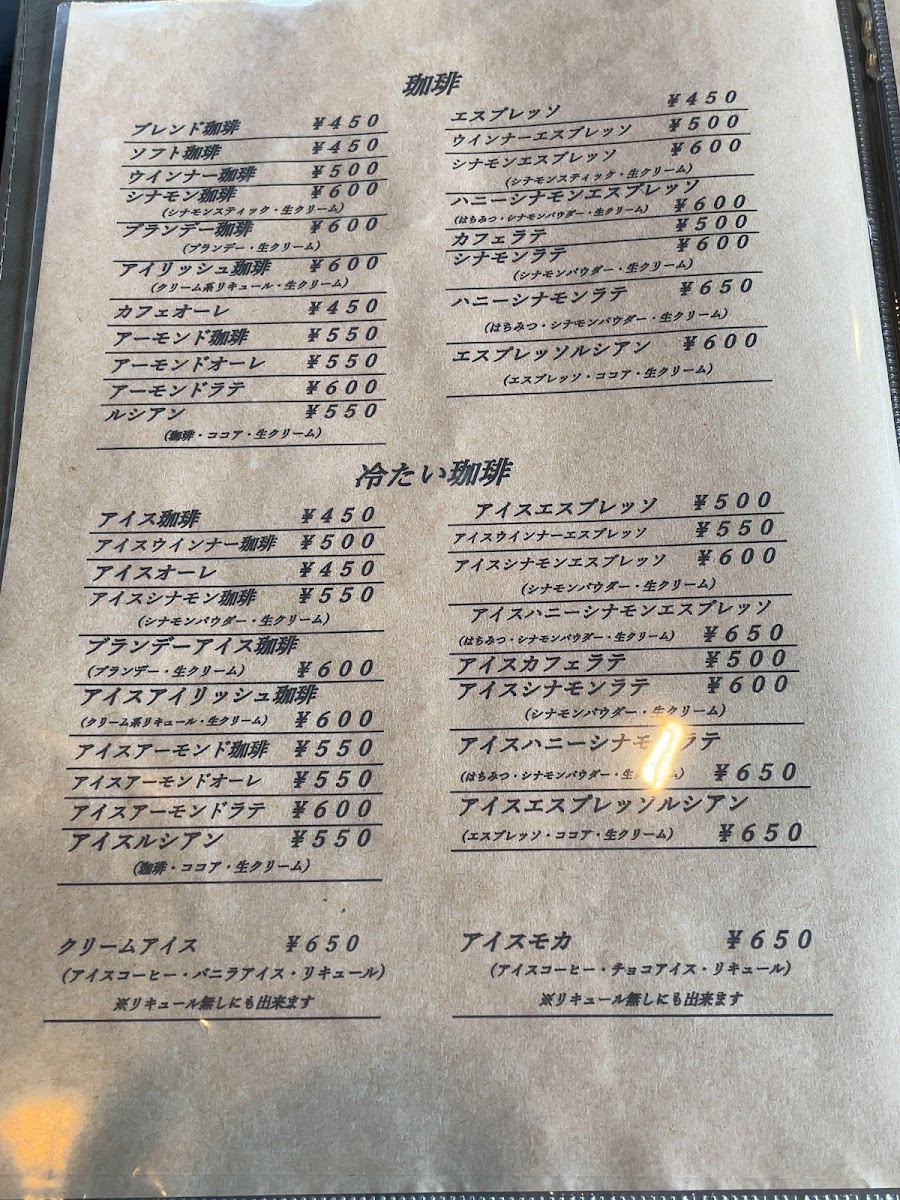 珈琲
ブレンド珈琲 ¥450
ソフト珈琲 ¥450
ウインナー珈琲 ¥500
シナモン珈琲 ¥600
(シナモンスティック・生クリーム)
ブランデー珈琲 ¥600
(ブランデー・生クリーム)
アイリッシュ珈琲 ¥600
(クリーム系リキュール・生クリーム)
カフェオーレ ¥450
アーモンド珈琲 ¥550
アーモンドオーレ ¥550
アーモンドラテ ¥600
ルシアン ¥550
(珈琲・ココア・生クリーム)
エスプレッソ ¥450
ウインナーエスプレッソ ¥500
シナモンエスプレッソ ¥600
(シナモンスティック・生クリーム)
ハニーシナモンエスプレッソ
(はちみつ・シナモンパウダー・生クリーム) ¥600
カフェラテ ¥500
シナモンラテ ¥600
(シナモンパウダー・生クリーム)
ハニーシナモンラテ ¥650
(はちみつ・シナモンパウダー・生クリーム)
エスプレッソルシアン ¥600
(エスプレッソ・ココア・生クリーム)
冷たい珈琲
アイス珈琲 ¥450
アイスウインナー珈琲 ¥500
アイスオーレ ¥450
アイスシナモン珈琲 ¥550
(シナモンパウダー・生クリーム)
ブランデーアイス珈琲
(ブランデー・生クリーム) ¥600
アイスアイリッシュ珈琲
(クリーム系リキュール・生クリーム) ¥600
アイスアーモンド珈琲 ¥550
アイスアーモンドオーレ ¥550
アイスアーモンドラテ ¥600
アイスルシアン ¥550
(珈琲・ココア・生クリーム)
アイスエスプレッソ ¥500
アイスウインナーエスプレッソ ¥550
アイスシナモンエスプレッソ ¥600
(シナモンパウダー・生クリーム)
アイスハニーシナモンエスプレッソ
(はちみつ・シナモンパウダー・生クリーム) ¥650
アイスカフェラテ ¥500
アイスシナモンラテ ¥600
(シナモンパウダー・生クリーム)
アイスハニーシナモンラテ
(はちみつ・シナモンパウダー・生クリーム) ¥650
アイスエスプレッソルシアン
(エスプレッソ・ココア・生クリーム) ¥650
クリームアイス ¥650
(アイスコーヒー・バニラアイス・リキュール)
※リキュール無しにも出来ます
アイスモカ ¥650
(アイスコーヒー・チョコアイス・リキュール)
※リキュール無しにも出来ます